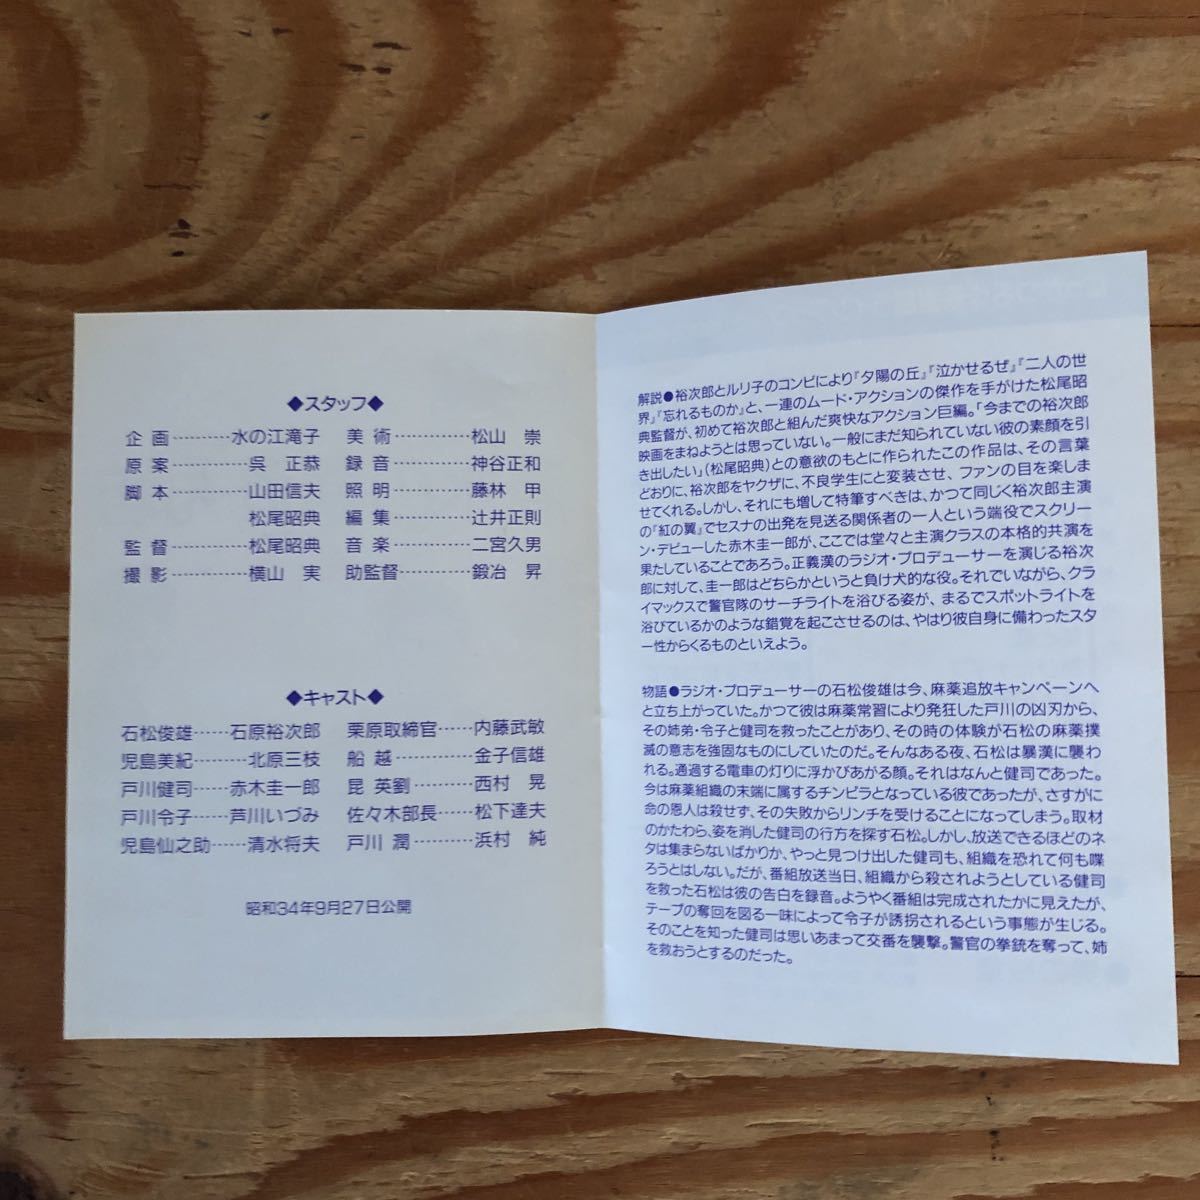 ◆スタッフ◆
企画………水の江滝子 美術…………松山 崇
原案………呉 正恭 録音…………神谷正和
脚本………山田信夫 照明…………藤林 甲
松尾昭典 編集…………辻井正則
監督………松尾昭典 音楽…………二宮久男
撮影………横山 実 助監督………鍛冶 昇
◆キャスト◆
石松俊雄……石原裕次郎 栗原取締官……内藤武敏
児島美紀……北原三枝 船越…………金子信雄
戸川健司……赤木圭一郎 昆 英劉………西村 晃
戸川令子……芦川いづみ 佐々木部長……松下達夫
児島仙之助……清水将夫 戸川 潤………浜村 純
昭和34年9月27日公開
解説●裕次郎とルリ子のコンビにより『夕陽の丘』『泣かせるぜ』『二人の世
界』『忘れるものか』と、一連のムード・アクションの傑作を手がけた松尾昭
典監督が、初めて裕次郎と組んだ爽快なアクション巨編。「今までの裕次郎
映画をまねようとは思っていない。一般にまだ知られていない彼の素顔を引
き出したい」(松尾昭典)との意欲のもとに作られたこの作品は、その言葉
どおりに、裕次郎をヤクザに、不良学生にと変装させ、ファンの目を楽しま
せてくれる。しかし、それにも増して特筆すべきは、かつて同じく裕次郎主演
の『紅の翼』でセスナの出発を見送る関係者の一人という端役でスクリー
ン・デビューした赤木圭一郎が、ここでは堂々と主演クラスの本格的共演を
果たしていることであろう。正義漢のラジオ・プロデューサーを演じる裕次
郎に対して、圭一郎はどちらかというと負け犬的な役。それでいながら、クラ
イマックスで警官隊のサーチライトを浴びる姿が、まるでスポットライトを
浴びているかのような錯覚を起こさせるのは、やはり彼自身に備わったスタ
ー性からくるものといえよう。
物語●ラジオ・プロデューサーの石松俊雄は今、麻薬追放キャンペーンへ
と立ち上がっていた。かつて彼は麻薬常習により発狂した戸川の凶刃から、
その姉弟・令子と健司を救ったことがあり、その時の体験が石松の麻薬撲
滅の意志を強固なものにしていたのだ。そんなある夜、石松は暴漢に襲わ
れる。通過する電車の灯りに浮かびあがる顔。それはなんと健司であった。
今は麻薬組織の末端に属するチンピラとなっている彼であったが、さすがに
命の恩人は殺せず、その失敗からリンチを受けることになってしまう。取材
のかたわら、姿を消した健司の行方を探す石松。しかし、放送できるほどのネ
タは集まらないばかりか、やっと見つけ出した健司も、組織を恐れて何も喋
ろうとはしない。だが、番組放送当日、組織から殺されようとしている健司
を救った石松は彼の告白を録音。ようやく番組は完成されたかに見えたが、
テープの奪回を図る一味によって令子が誘拐されるという事態が生じる。
そのことを知った健司は思いあまって交番を襲撃。警官の拳銃を奪って、姉
を救おうとするのだった。